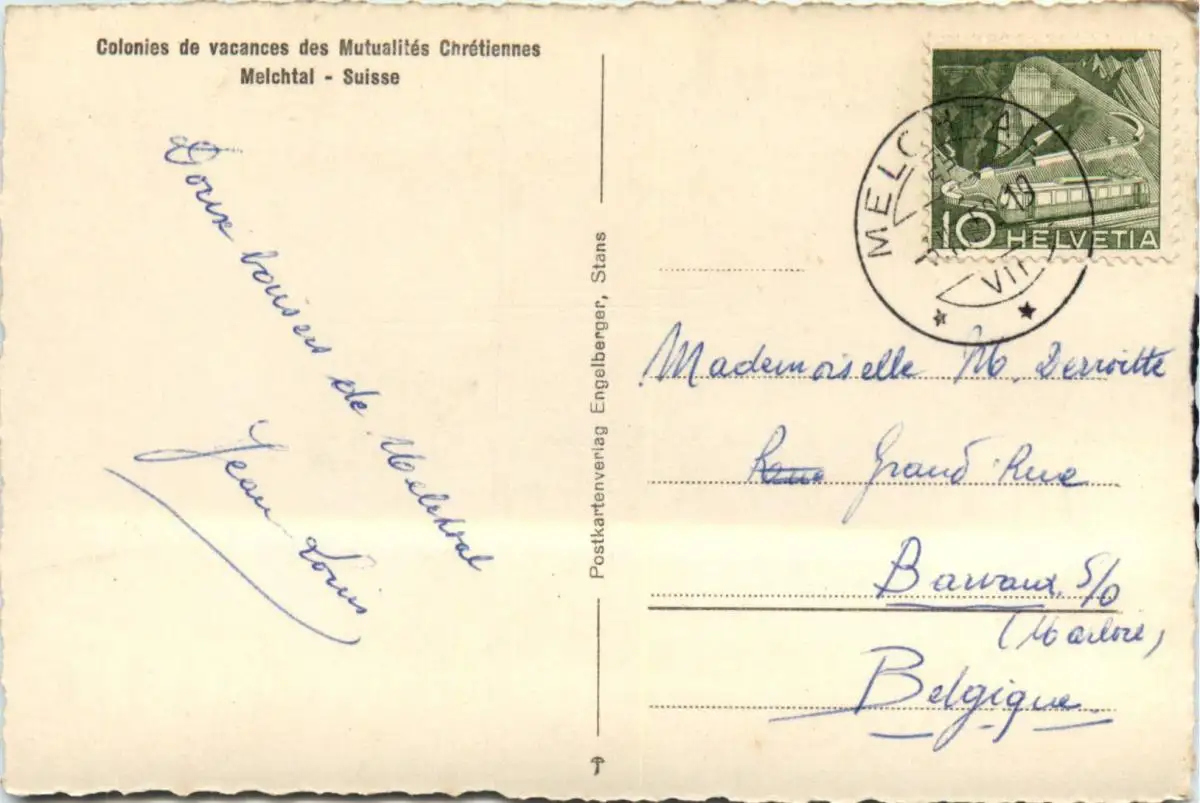 Colonies de vacances des Mutualités Chrétiennes
Melchtal - Suisse
Doux baisers de Melchtal
Jean Louis
Postkartenverlag Engelberger, Stans
MELCHTAL
19
VII
10 HELVETIA
Mademoiselle M. Derroitte
Grand Rue
Barvaux s/O
Belgique